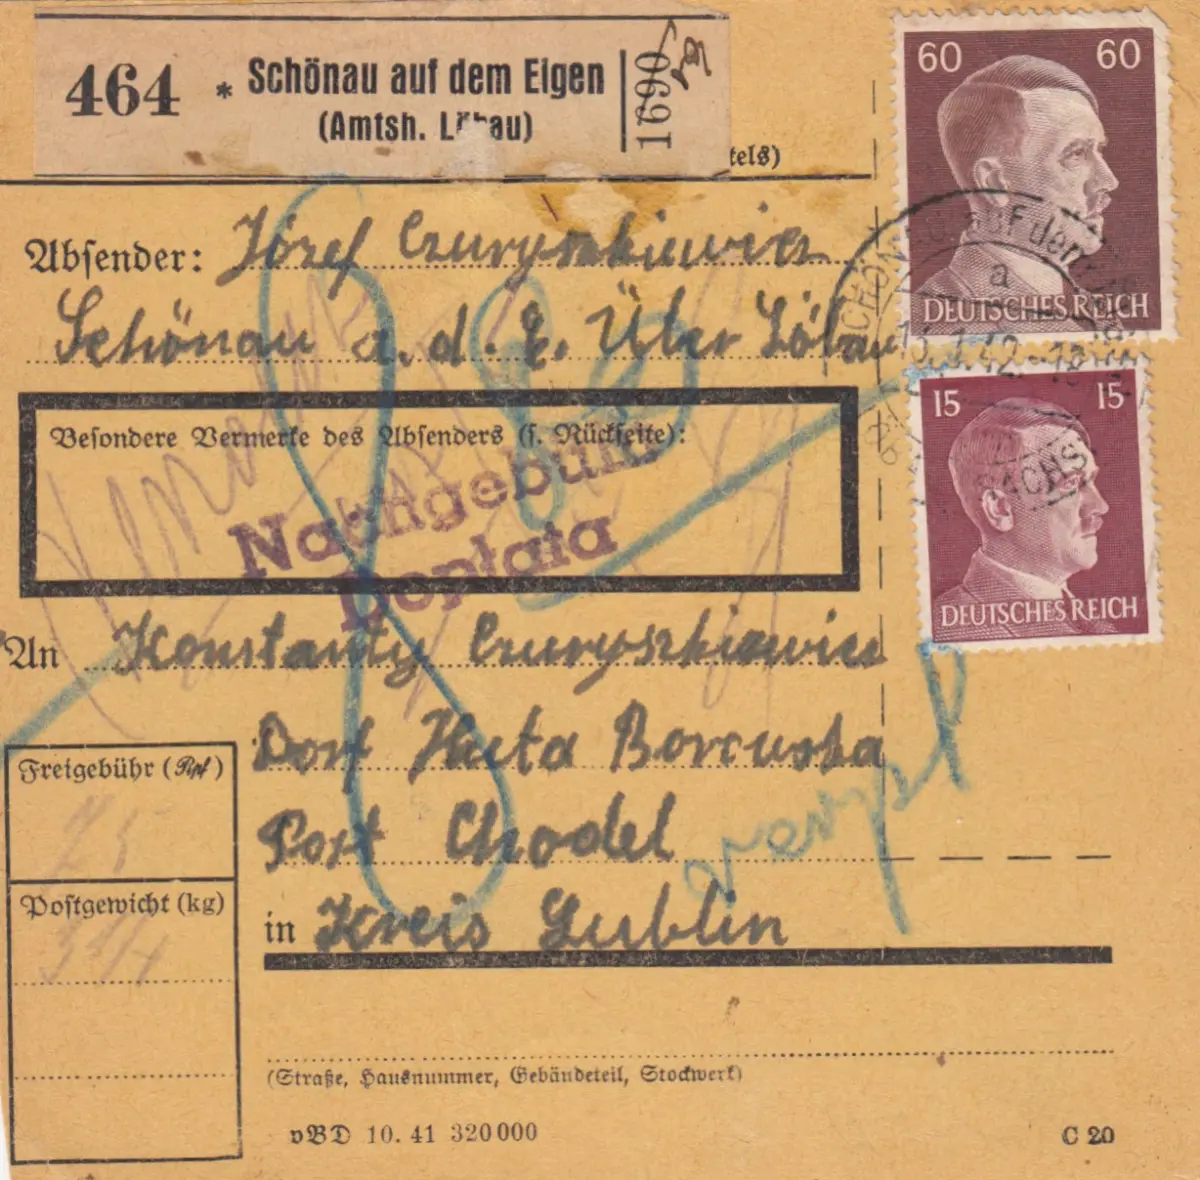 464 * Schönau auf dem Eigen
(Amtsh. Löbau)
1690
tels)
60 60
DEUTSCHES REICH
Absender: Józef Czuryszkiewicz
Schönau a. d. E. Über Löbau
SCHÖNAU auf dem
a
42
SACHS.
15 15
DEUTSCHES REICH
Besondere Vermerke des Absenders (s. Rückseite):
Nachgebühr
Dopłata
An Konstanty Czuryszkiewicz
Dorf Huta Borowska
Post Chodel
in Kreis Lublin
Freigebühr (Rpf)
75
Postgewicht (kg)
(Straße, Hausnummer, Gebäudeteil, Stockwerk)
vBD 10. 41 320000
C 20